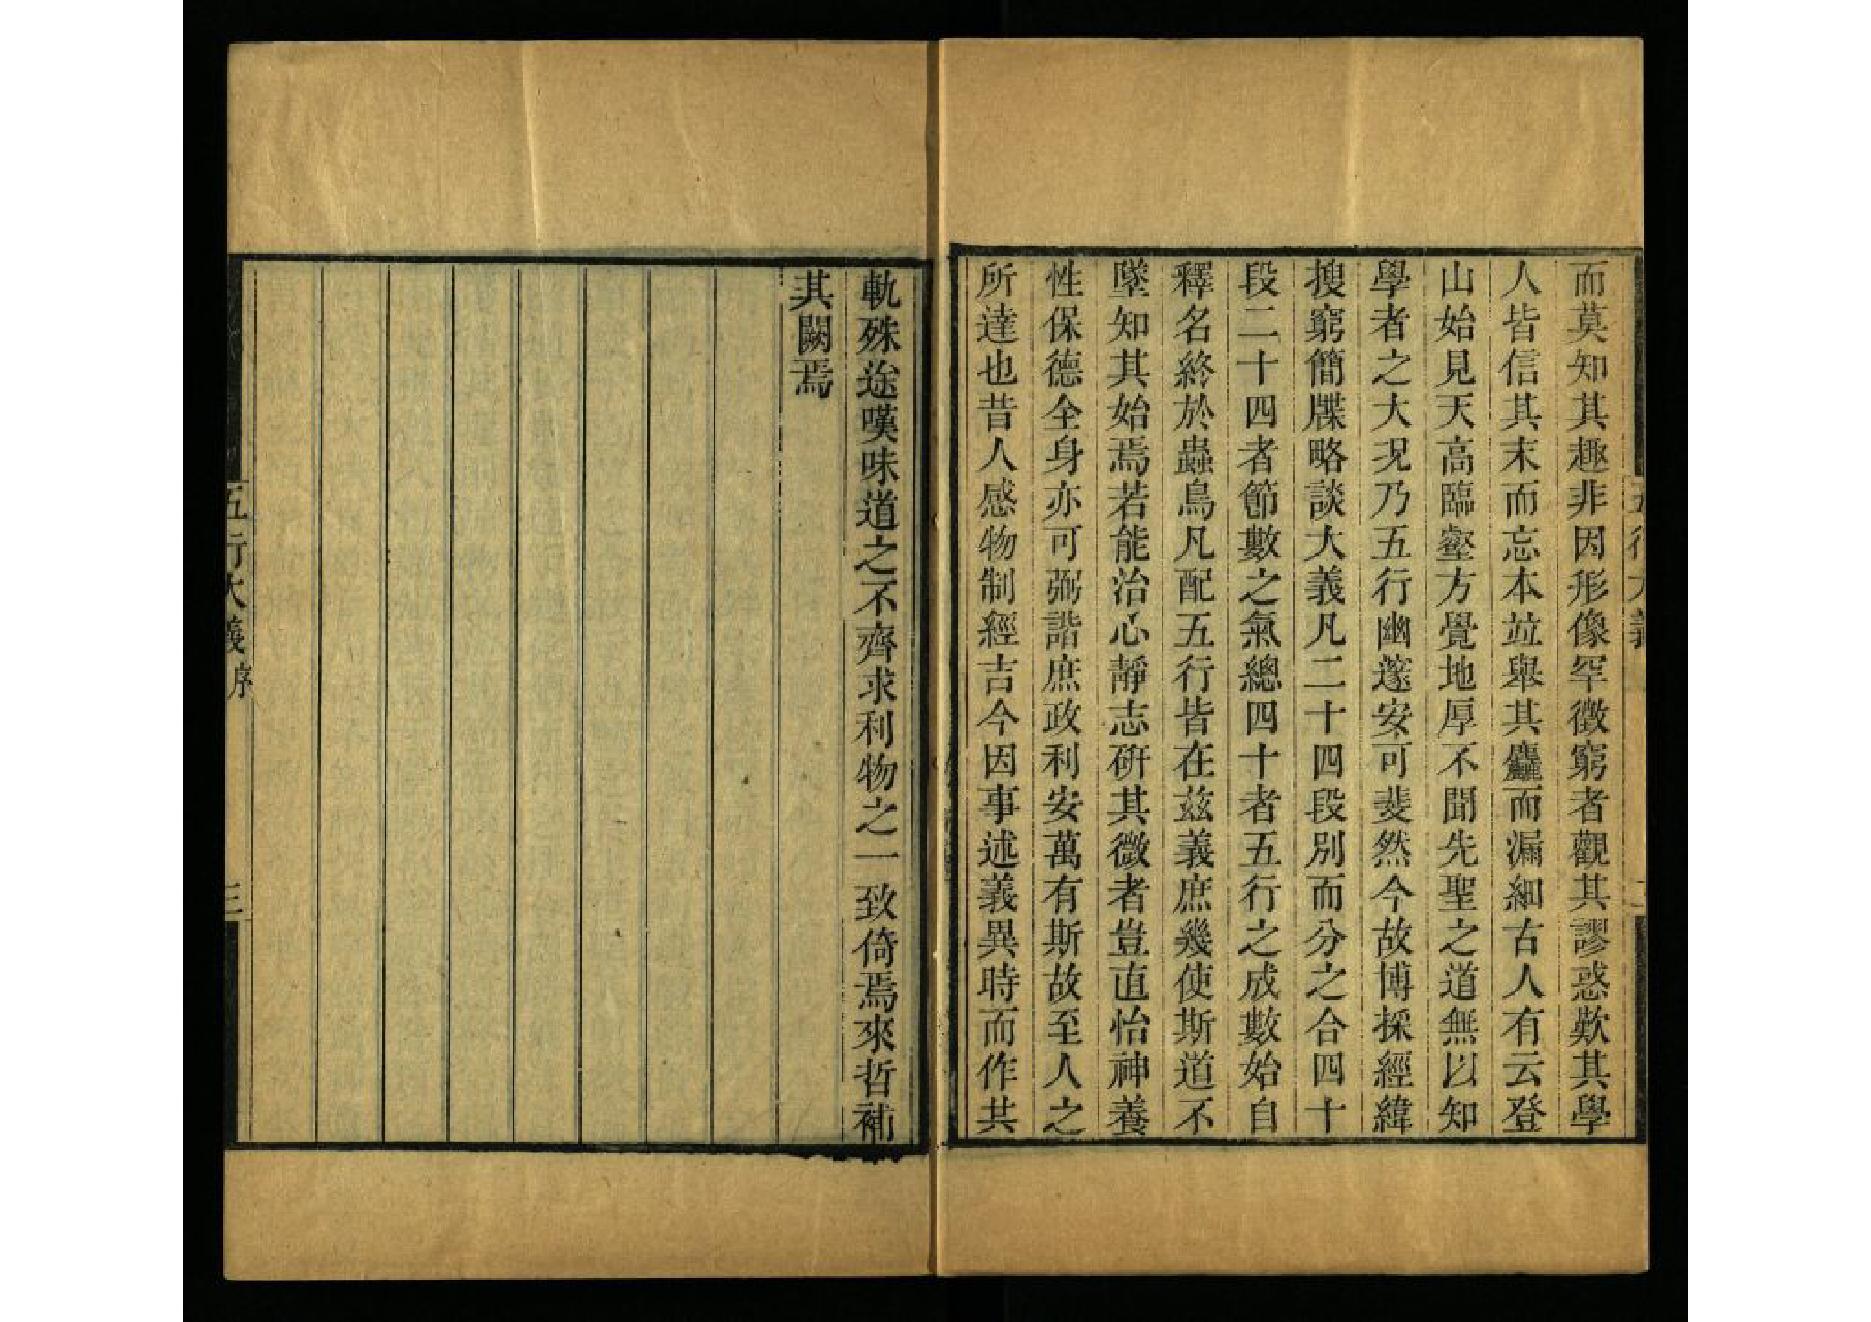 而莫知其趣非因形像罕徵窮者觀其謬惑歎其學
人皆信其末而忘本竝舉其麤而漏細古人有云登
山始見天高臨壑方覺地厚不聞先聖之道無以知
學者之大況乃五行幽邃安可斐然今故博採經緯
搜窮簡牒略談大義凡二十四段別而分之合四十
段二十四者節數之氣總四十者五行之成數始自
釋名終於蟲鳥凡配五行皆在茲義庶幾使斯道不
墜知其始焉若能治心靜志硏其微者豈直怡神養
性保德全身亦可弼諧庶政利安萬有斯故至人之
所達也昔人感物制經吉今因事述義異時而作共
軌殊途嘆味道之不齊求利物之一致倚焉來哲補
其闕焉
五行大義序
三
五行大義